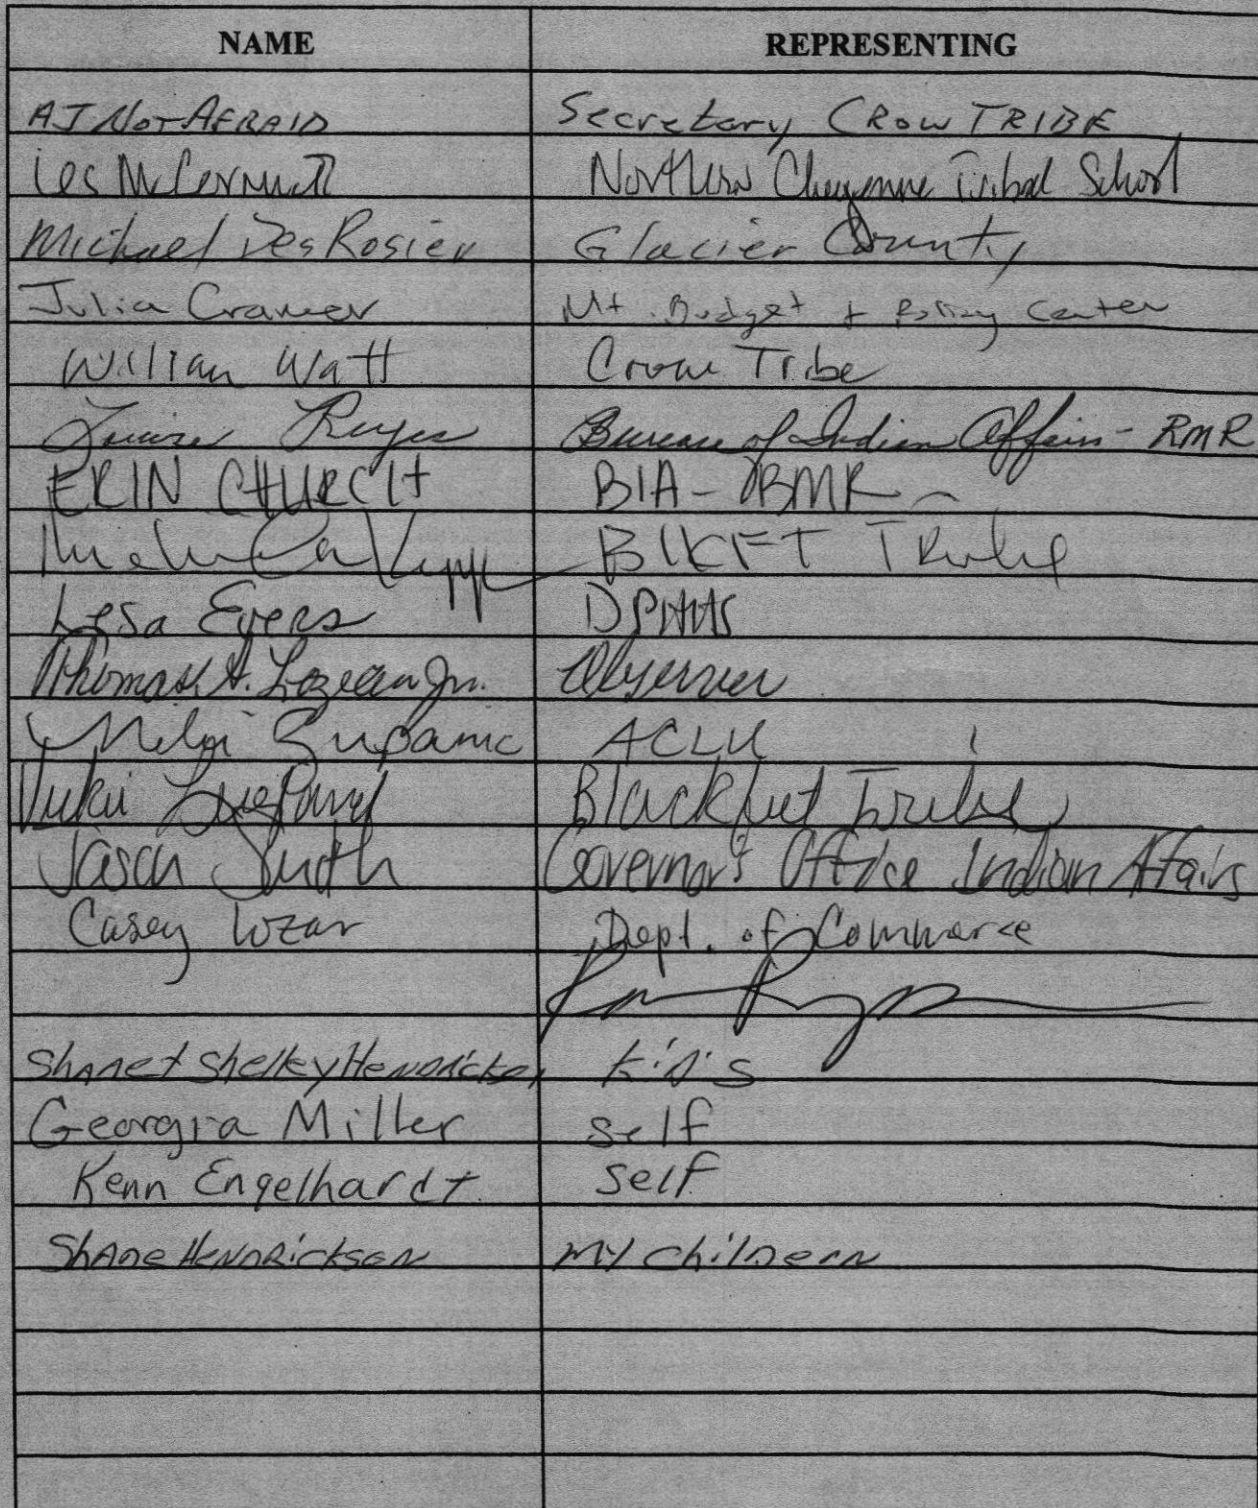 NAME REPRESENTING
AJ Not Afraid Secretary Crow Tribe
Les McCormick Northern Cheyenne Tribal School
Michael DesRosier Glacier County
Julia Cramer Mt. Budget + Policy Center
William Watt Crow Tribe
Reyes Bureau of Indian Affairs - RMR
ERIN CHURCH BIA -
BLKFT Tribe
Lesa Evers DPHHS
Thomas A. Lozeau Jr. Observer
Niki Zupanic ACLU
Blackfeet Tribe
Jason Smith Governor's Office Indian Affairs
Casey Lozar Dept. of Commerce
Shane + Shelley Hendrickson Kids
Georgia Miller self
Kenn Engelhardt self
Shane Hendrickson My Childern